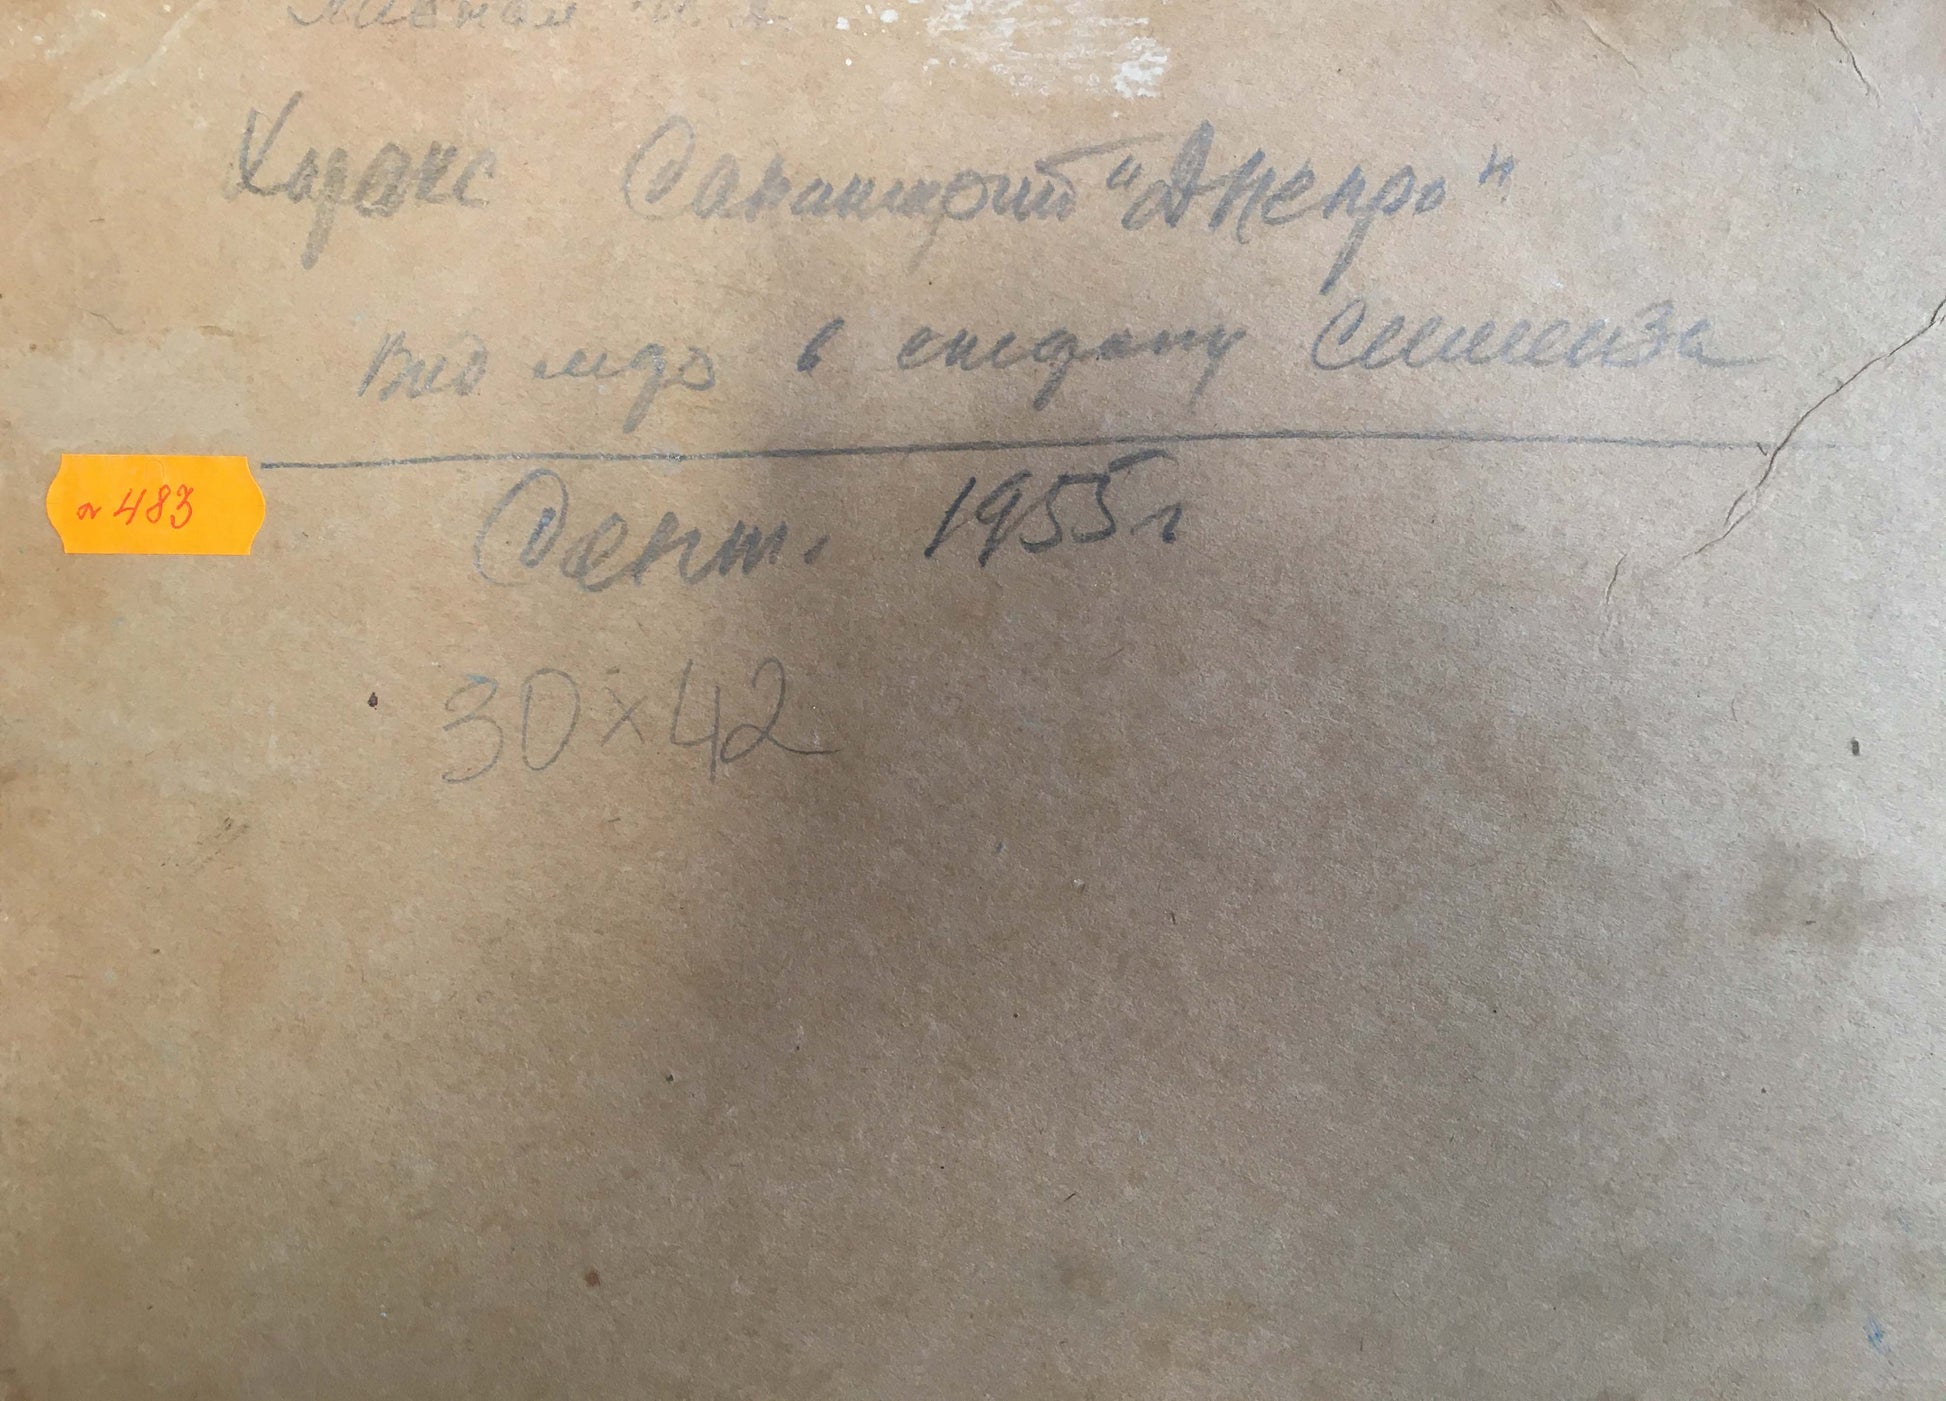 Харакс Санаторий "Днепр"
Вид моря в сторону Симеиза
Сент. 1955 г
№ 483
30×42